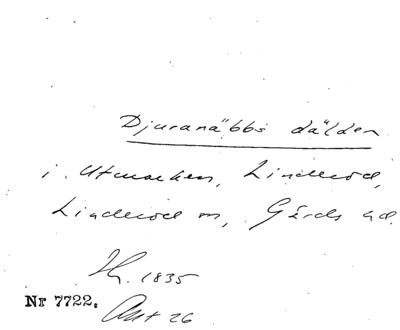 Djuranäbbs dälden
i Utmarken, Linderöd,
Linderöd sn, Gärds hd.
H. 1835
Nr 7722. Akt 26